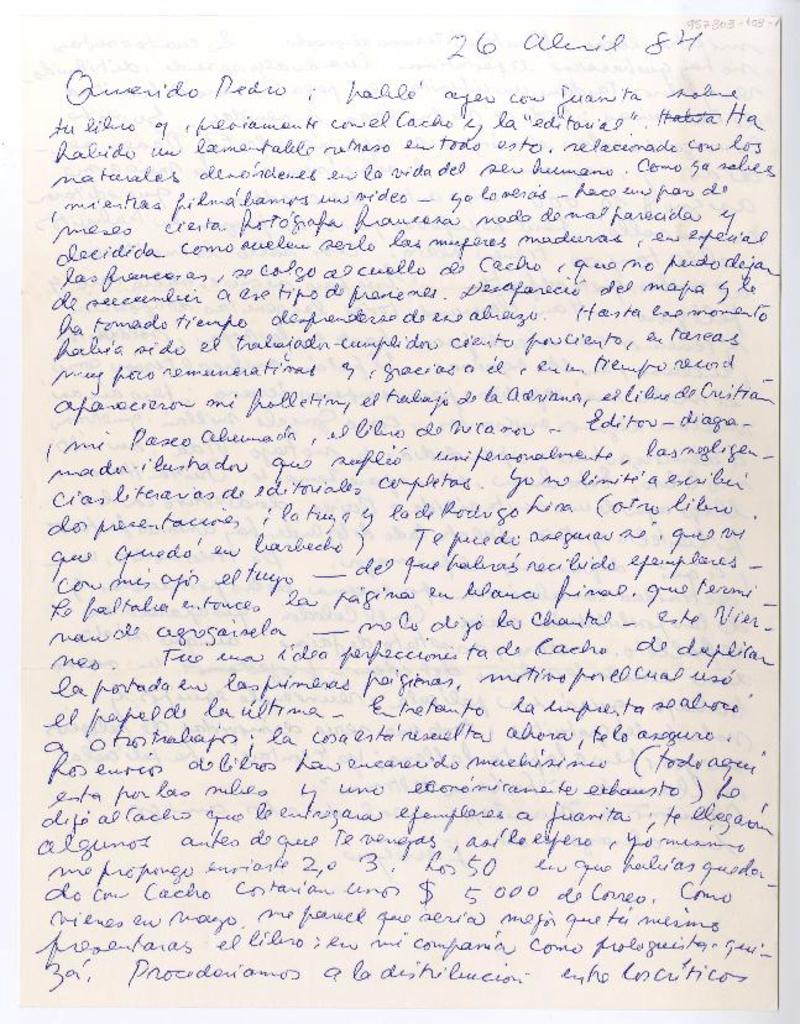 957303-108-1
26 Abril 84
Querido Pedro: hablé ayer con Juanita sobre
tu libro y, previamente con el Cacho y la "editorial". Había Ha
habido un lamentable retraso en todo esto, relacionado con los
naturales desórdenes en la vida del ser humano. Como ya sabes
mientras filmábamos un video — ya lo verás — hace un par de
meses cierta fotógrafa francesa nada de mal parecida y
decidida como suelen serlo las mujeres maduras, en especial
las francesas, se colgó al cuello de Cacho, que no pudo dejar
de sucumbir a ese tipo de presiones. Desapareció del mapa y le
ha tomado tiempo desprenderse de ese abrazo. Hasta ese momento
había sido el trabajador-cumplidor ciento por ciento, en tareas
muy poco remunerativas y, gracias a él, en un tiempo record
aparecieron mi folletín, el trabajo de la Adriana, el libro de Cristián
, mi Paseo Ahumada, el libro de Nicanor — Editor-diagra-
mador-ilustrador que suplió unipersonalmente, las negligen-
cias literarias de editoriales completas. Yo me limité a escribir
dos presentaciones; la tuya y la de Rodrigo Lira (otro libro
que quedó en barbecho). Te puedo asegurar que vi
con mis ojos el tuyo — del que habrás recibido ejemplares —
Le faltaba entonces la página en blanco final, que termi-
nan de agregársela — me lo dijo la Chantal — este Vier-
nes. Fue una idea perfeccionista de Cacho, de duplicar
la portada en las primeras páginas, motivo por el cual usó
el papel de la última — Entretanto la imprenta se abocó
a otros trabajos; la cosa está resuelta ahora, te lo aseguro.
Los envíos de libros han encarecido muchísimo (todo aquí
esta por las nubes y uno económicamente exhausto) Le
dije al Cacho que le entregara ejemplares a Juanita, te llegarán
algunos antes de que te vengas, así lo espero, yo mismo
me propongo enviarte 2, o 3. Los 50 en que habías queda-
do con Cacho costarían unos $ 5 000 de Correo. Como
vienes en mayo, me parece que sería mejor que tú mismo
presentaras el libro; en mi compañía como prologuista, qui-
zá. Procederíamos a la distribución entre los críticos